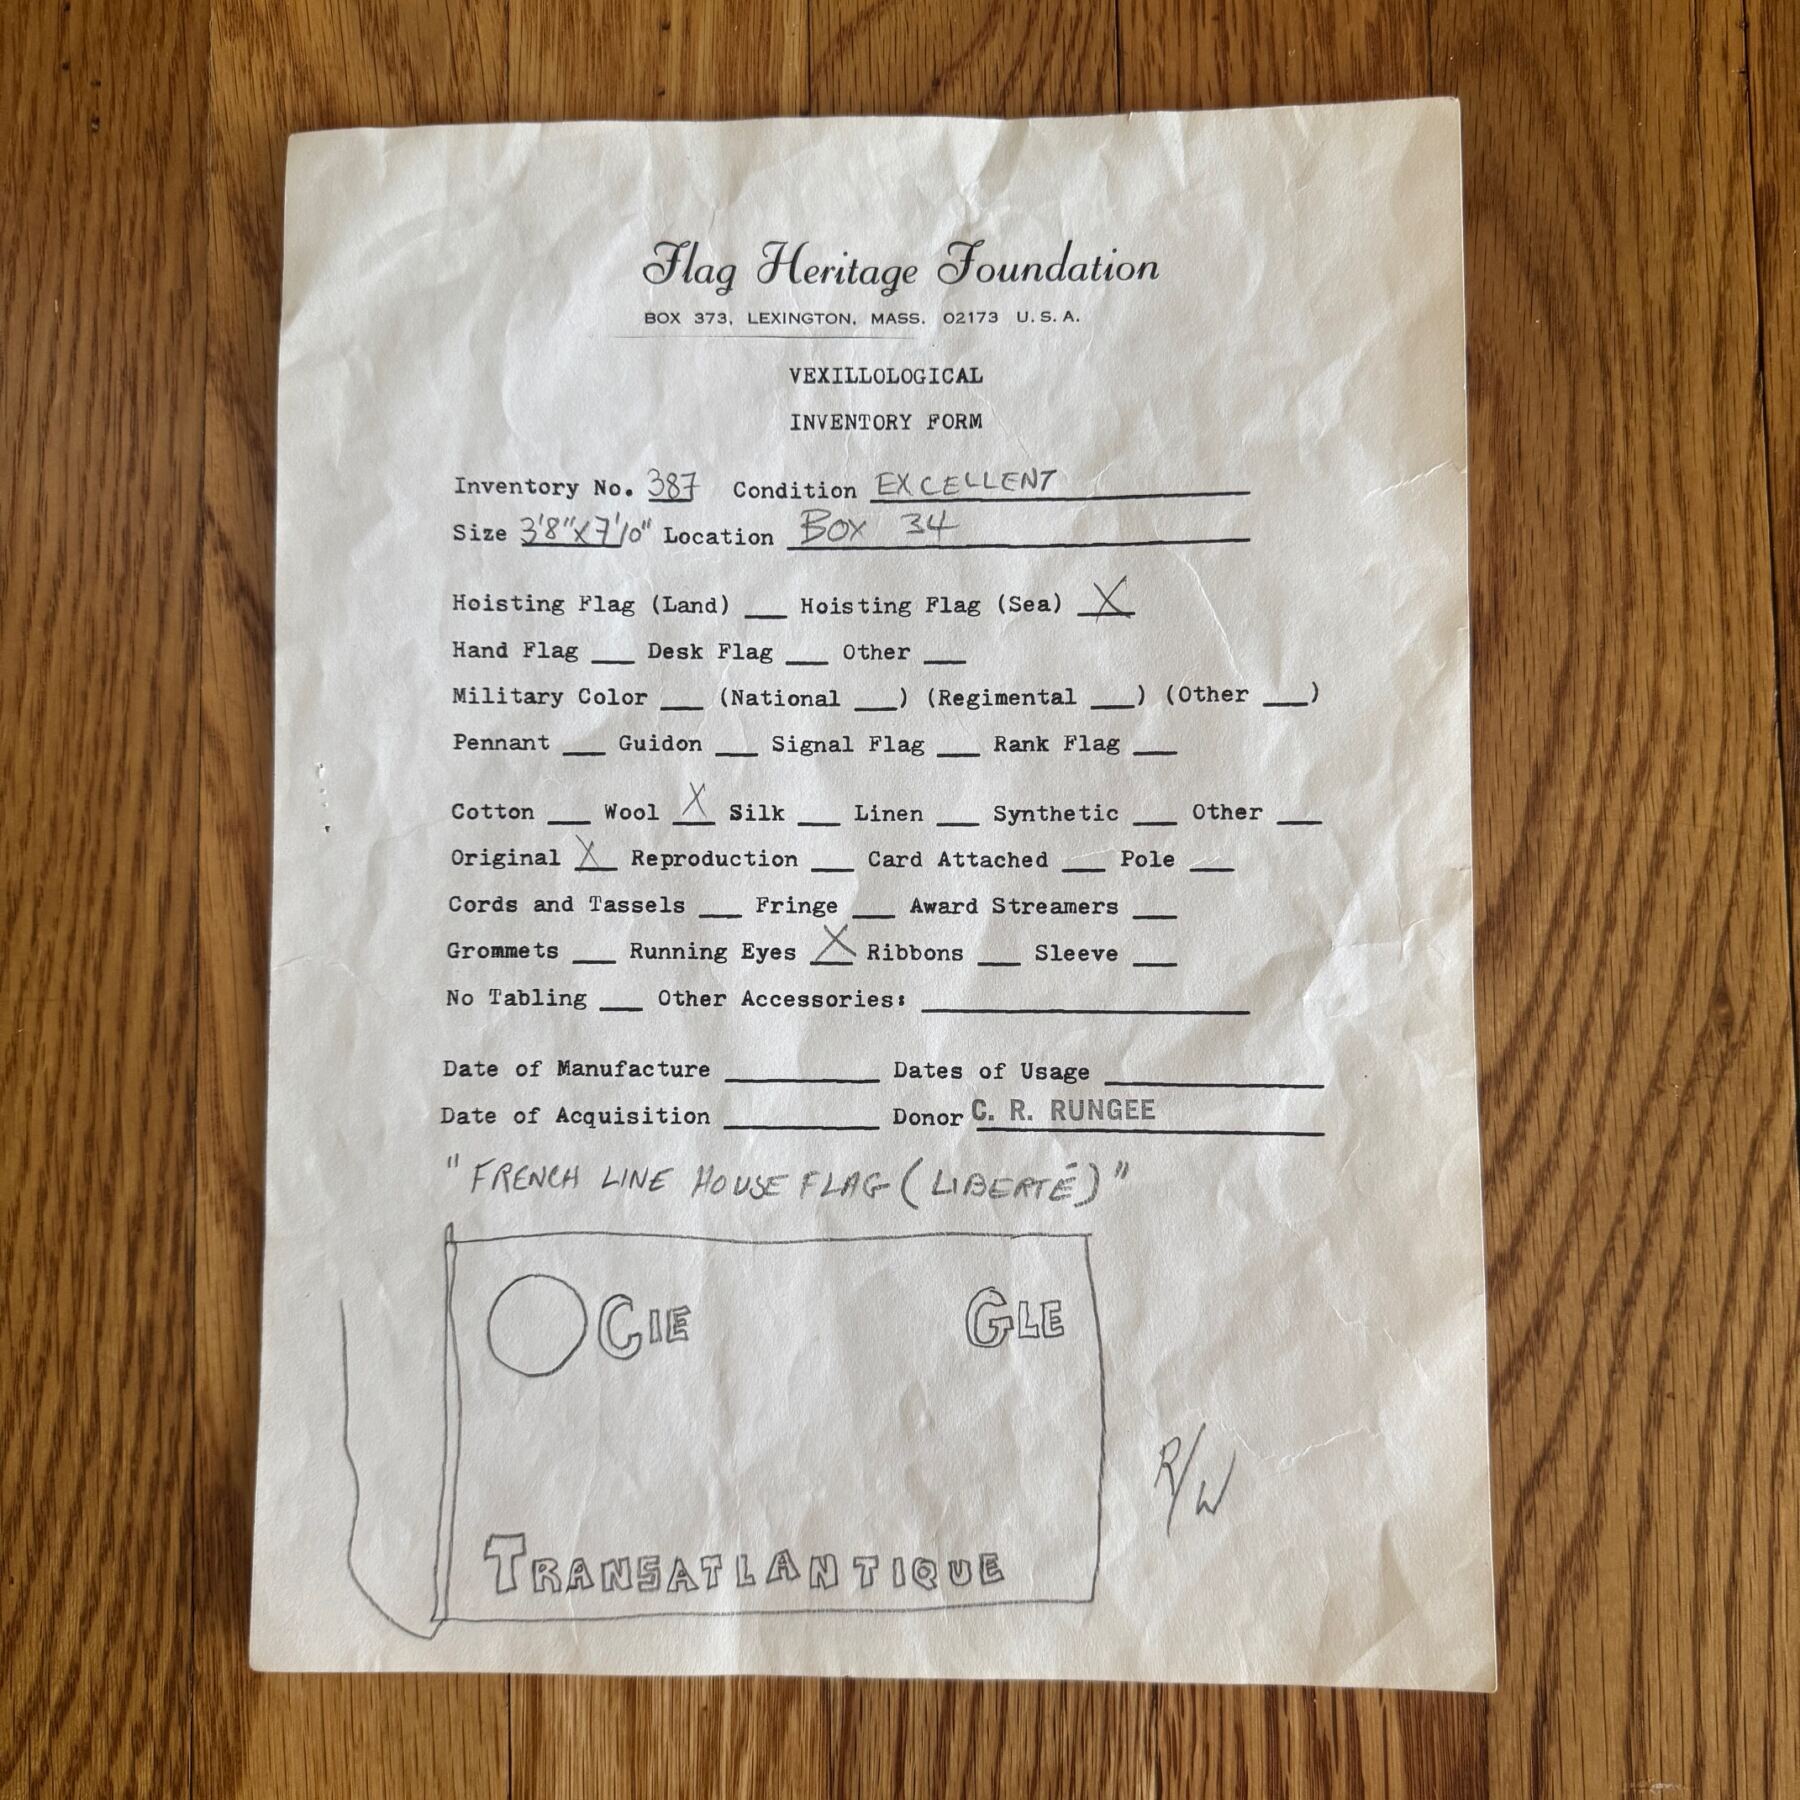 Flag Heritage Foundation
BOX 373, LEXINGTON, MASS. 02173 U.S.A.
VEXILLOLOGICAL
INVENTORY FORM
Inventory No. 387 Condition EXCELLENT
Size 3'8"X7'10" Location BOX 34
Hoisting Flag (Land) ___ Hoisting Flag (Sea) X
Hand Flag ___ Desk Flag ___ Other ___
Military Color ___ (National ___) (Regimental ___) (Other ___)
Pennant ___ Guidon ___ Signal Flag ___ Rank Flag ___
Cotton ___ Wool X Silk ___ Linen ___ Synthetic ___ Other ___
Original X Reproduction ___ Card Attached ___ Pole ___
Cords and Tassels ___ Fringe ___ Award Streamers ___
Grommets ___ Running Eyes X Ribbons ___ Sleeve ___
No Tabling ___ Other Accessories: ___
Date of Manufacture ___ Dates of Usage ___
Date of Acquisition ___ Donor C. R. RUNGEE
"FRENCH LINE HOUSE FLAG (LIBERTÉ)"
CIE GLE
R/W
TRANSATLANTIQUE